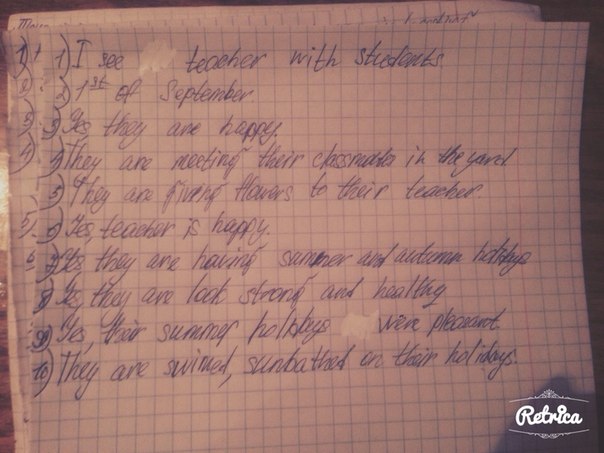 1) 1) I see teacher with students
2) 2) 1st of September.
3) 3) Yes, they are happy.
4) 4) They are meeting their classmates in the yard
5) They are giving flowers to their teacher.
5) 6) Yes, teacher is happy.
6 7) Yes, they are having summer and autumn holidays
8) Yes, they are look strong and healthy
9) Yes, their summer holidays were pleasant.
10) They are swimed, sunbathed on their holidays.
Retrica